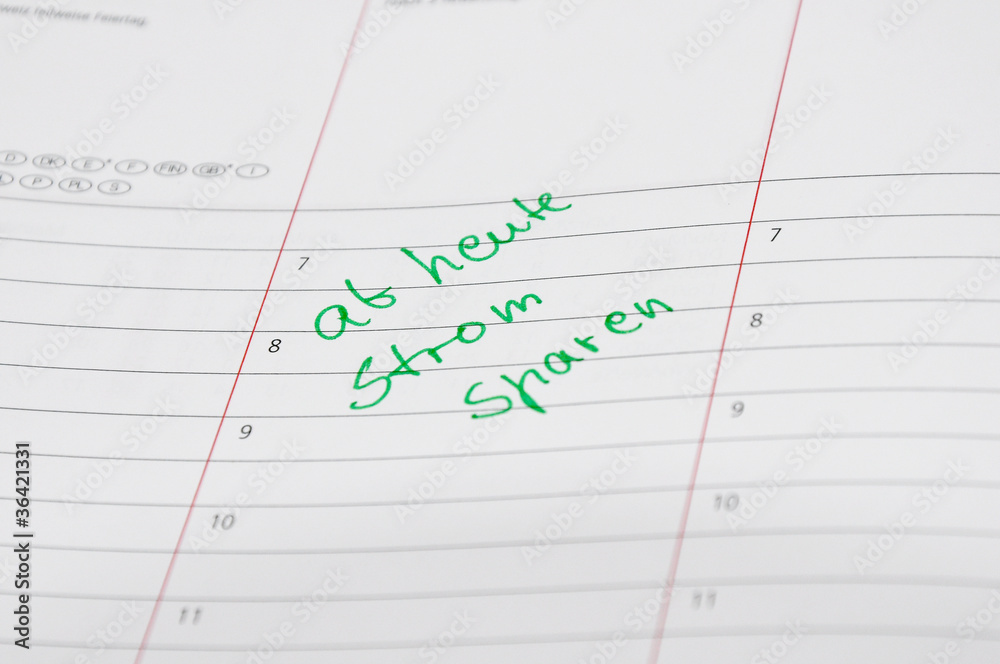 teilweise Feiertag.
D DK E* F FIN GB* I
P PL S
7
7
ab heute
8
8
Strom
sparen
9
9
10
10
11
11
Adobe Stock | #36421331